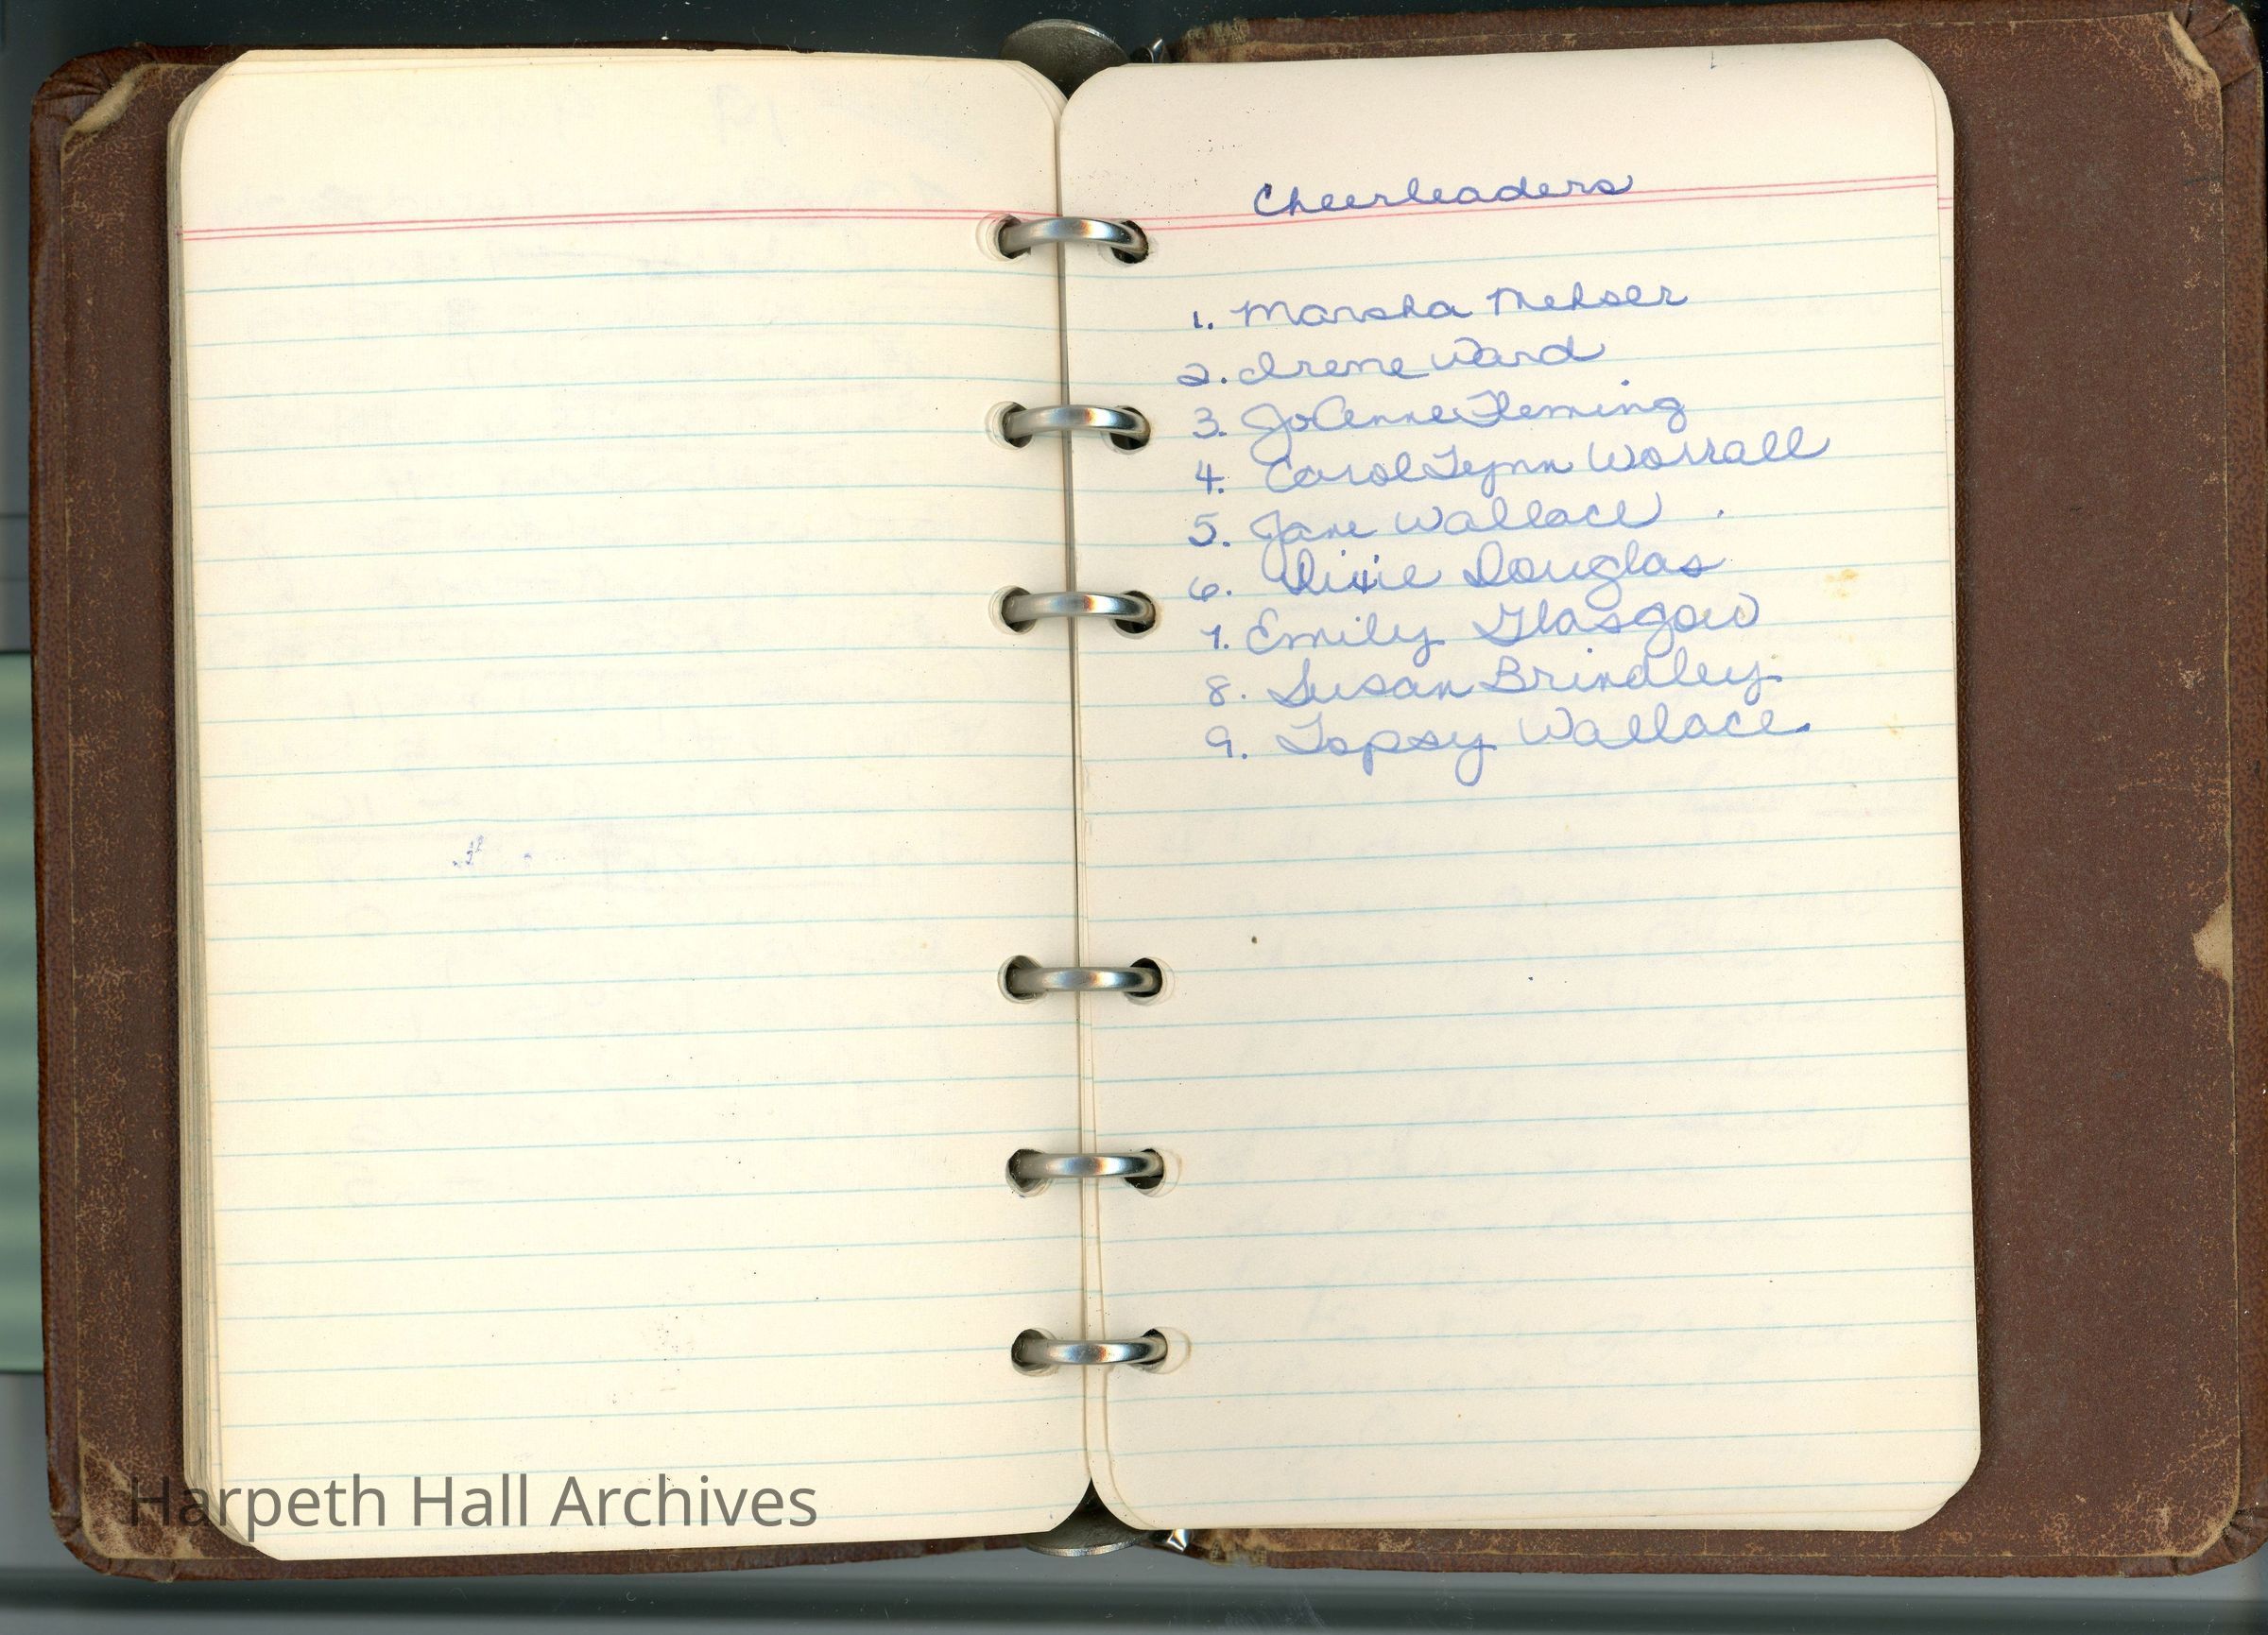 Cheerleaders
1. Marsha Mehser
2. Irene Ward
3. JoAnne Fleming
4. Carol Lynn Worrall
5. Jane Wallace
6. Dixie Douglas
7. Emily Glasgow
8. Susan Brindley
9. Topsy Wallace.
Harpeth Hall Archives